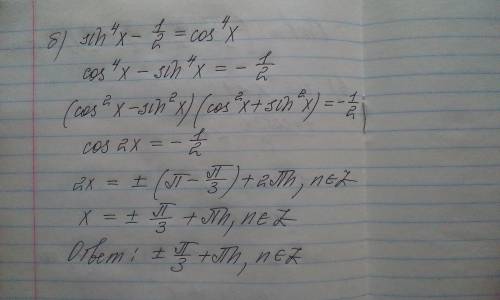 б) sin⁴x - 1/2 = cos⁴x
cos⁴x - sin⁴x = - 1/2
(cos²x - sin²x)(cos²x + sin²x) = - 1/2
cos 2x = - 1/2
2x = ± (π - π/3) + 2πn, n∈Z
x = ± π/3 + πn, n∈Z
Ответ: ± π/3 + πn, n∈Z